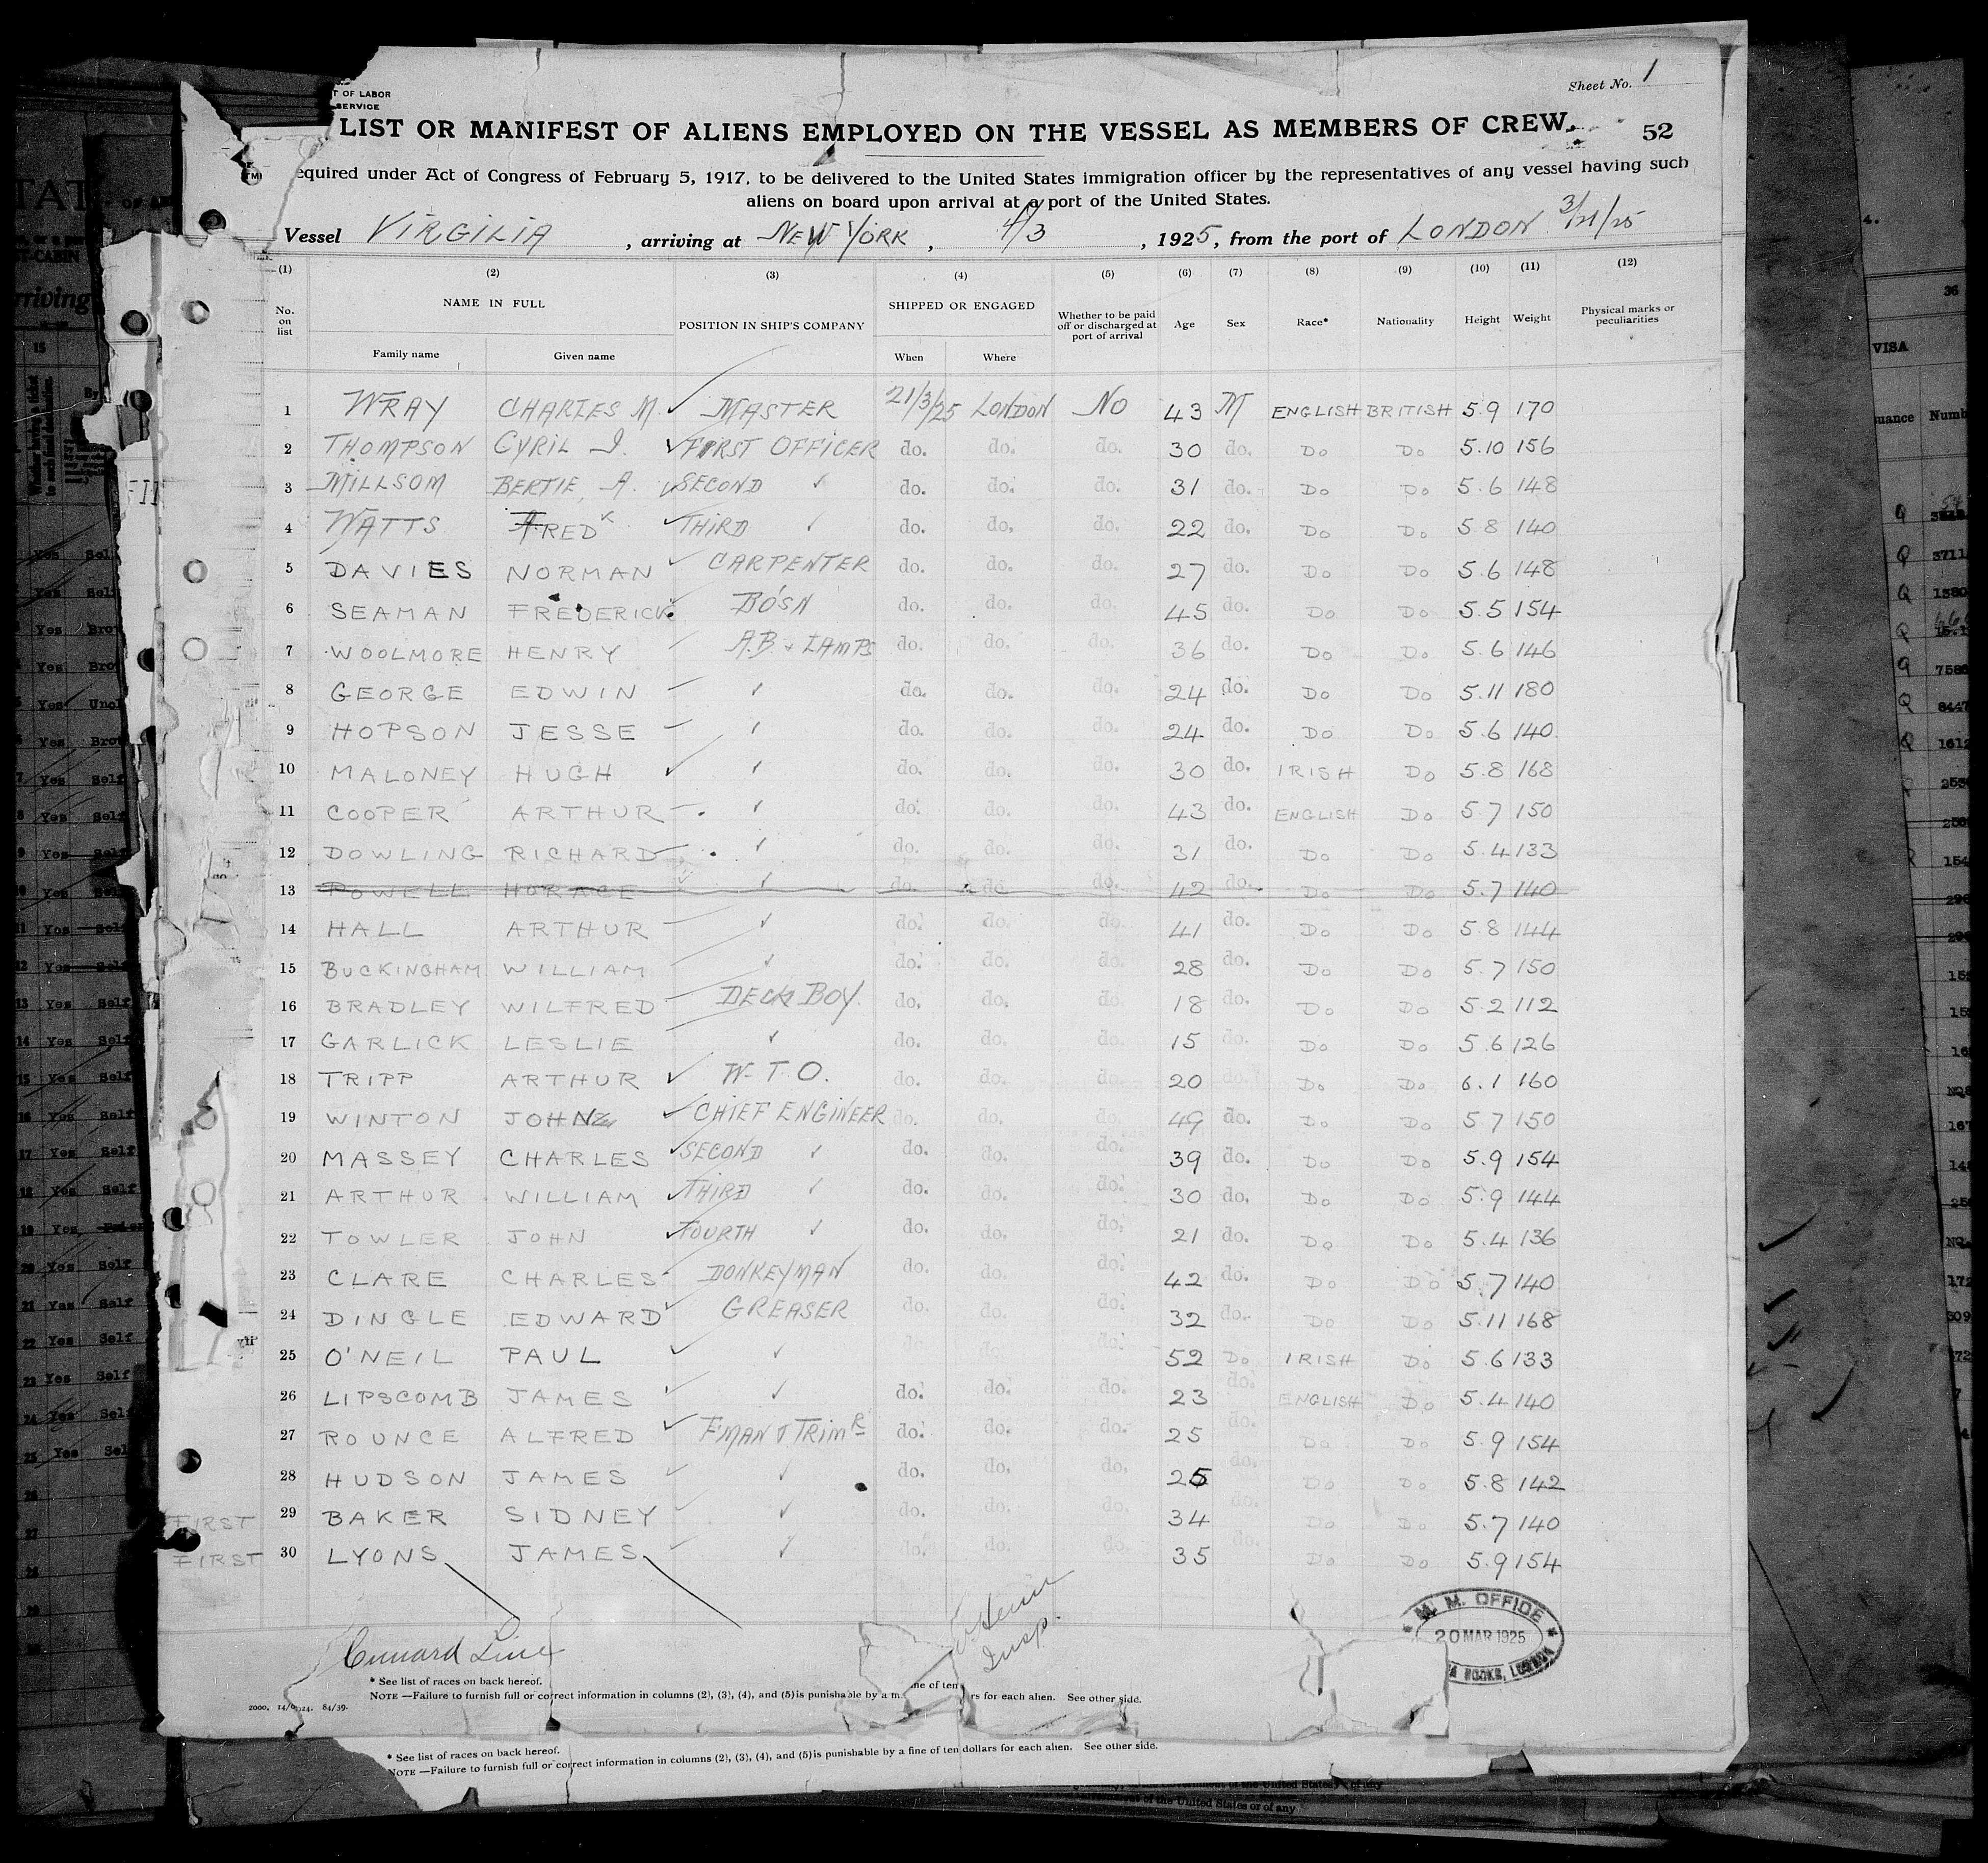 Sheet No. 1
T OF LABOR
SERVICE
LIST OR MANIFEST OF ALIENS EMPLOYED ON THE VESSEL AS MEMBERS OF CREW.
52
equired under Act of Congress of February 5, 1917, to be delivered to the United States immigration officer by the representatives of any vessel having such
aliens on board upon arrival at a port of the United States.
Vessel VIRGILIA, arriving at NEW YORK, 4/3, 1925, from the port of LONDON 3/21/25
(1) (2) (3) (4) (5) (6) (7) (8) (9) (10) (11) (12)
No. on list NAME IN FULL POSITION IN SHIP'S COMPANY SHIPPED OR ENGAGED Whether to be paid off or discharged at port of arrival Age Sex Race* Nationality Height Weight Physical marks or peculiarities
Family name Given name When Where
1 WRAY CHARLES M. ✓ MASTER 21/3/25 LONDON NO 43 M ENGLISH BRITISH 5.9 170
2 THOMPSON CYRIL J. ✓ FIRST OFFICER do. do. do. 30 do. Do Do 5.10 156
3 MILLSOM BERTIE A. ✓ SECOND ✓ do. do. do. 31 do. Do Do 5.6 148
4 WATTS FRED ✓ THIRD ✓ do. do. do. 22 do. Do Do 5.8 140
5 DAVIES NORMAN ✓ CARPENTER do. do. do. 27 do. Do Do 5.6 148
6 SEAMAN FREDERICK BO'SN do. do. do. 45 do. Do Do 5.5 154
7 WOOLMORE HENRY A.B. & LAMPS do. do. do. 36 do. Do Do 5.6 146
8 GEORGE EDWIN ✓ do. do. do. 24 do. Do Do 5.11 180
9 HOPSON JESSE ✓ do. do. do. 24 do. Do Do 5.6 140
10 MALONEY HUGH ✓ ✓ do. do. do. 30 do. IRISH Do 5.8 168
11 COOPER ARTHUR ✓ do. do. do. 43 do. ENGLISH Do 5.7 150
12 DOWLING RICHARD ✓ do. do. do. 31 do. Do Do 5.4 133
13 POWELL HORACE ✓ do. do. do. 42 do. Do Do 5.7 140
14 HALL ARTHUR ✓ do. do. do. 41 do. Do Do 5.8 144
15 BUCKINGHAM WILLIAM ✓ do. do. do. 28 do. Do Do 5.7 150
16 BRADLEY WILFRED DECK BOY. do. do. do. 18 do. Do Do 5.2 112
17 GARLICK LESLIE ✓ do. do. do. 15 do. Do Do 5.6 126
18 TRIPP ARTHUR ✓ W.T.O. do. do. do. 20 do. Do Do 6.1 160
19 WINTON JOHN ✓ CHIEF ENGINEER do. do. do. 49 do. Do Do 5.7 150
20 MASSEY CHARLES ✓ SECOND ✓ do. do. do. 39 do. Do Do 5.9 154
21 ARTHUR WILLIAM ✓ THIRD ✓ do. do. do. 30 do. Do Do 5.9 144
22 TOWLER JOHN ✓ FOURTH ✓ do. do. do. 21 do. Do Do 5.4 136
23 CLARE CHARLES DONKEYMAN do. do. do. 42 do. Do Do 5.7 140
24 DINGLE EDWARD ✓ GREASER do. do. do. 32 do. Do Do 5.11 168
25 O'NEIL PAUL ✓ ✓ do. 52 Do IRISH Do 5.6 133
26 LIPSCOMB JAMES ✓ ✓ do. do. do. 23 do. ENGLISH Do 5.4 140
27 ROUNCE ALFRED ✓ F'MAN & TRIMR do. do. do. 25 do. Do Do 5.9 154
28 HUDSON JAMES ✓ ✓ do. do. do. 25 do. Do Do 5.8 142
FIRST 29 BAKER SIDNEY ✓ ✓ do. do. do. 34 do. Do Do 5.7 140
FIRST 30 LYONS JAMES ✓ ✓ do. do. do. 35 do. Do Do 5.9 154
M. M. OFFICE
20 MAR 1925
DOCKS, LONDON
Cunard Line
Insp.
* See list of races on back hereof.
NOTE —Failure to furnish full or correct information in columns (2), (3), (4), and (5) is punishable by a ne of ten rs for each alien. See other side.
2000. 14/9/24. 84/39.
* See list of races on back hereof.
NOTE —Failure to furnish full or correct information in columns (2), (3), (4), and (5) is punishable by a fine of ten dollars for each alien. See other side.
of the United States or of any